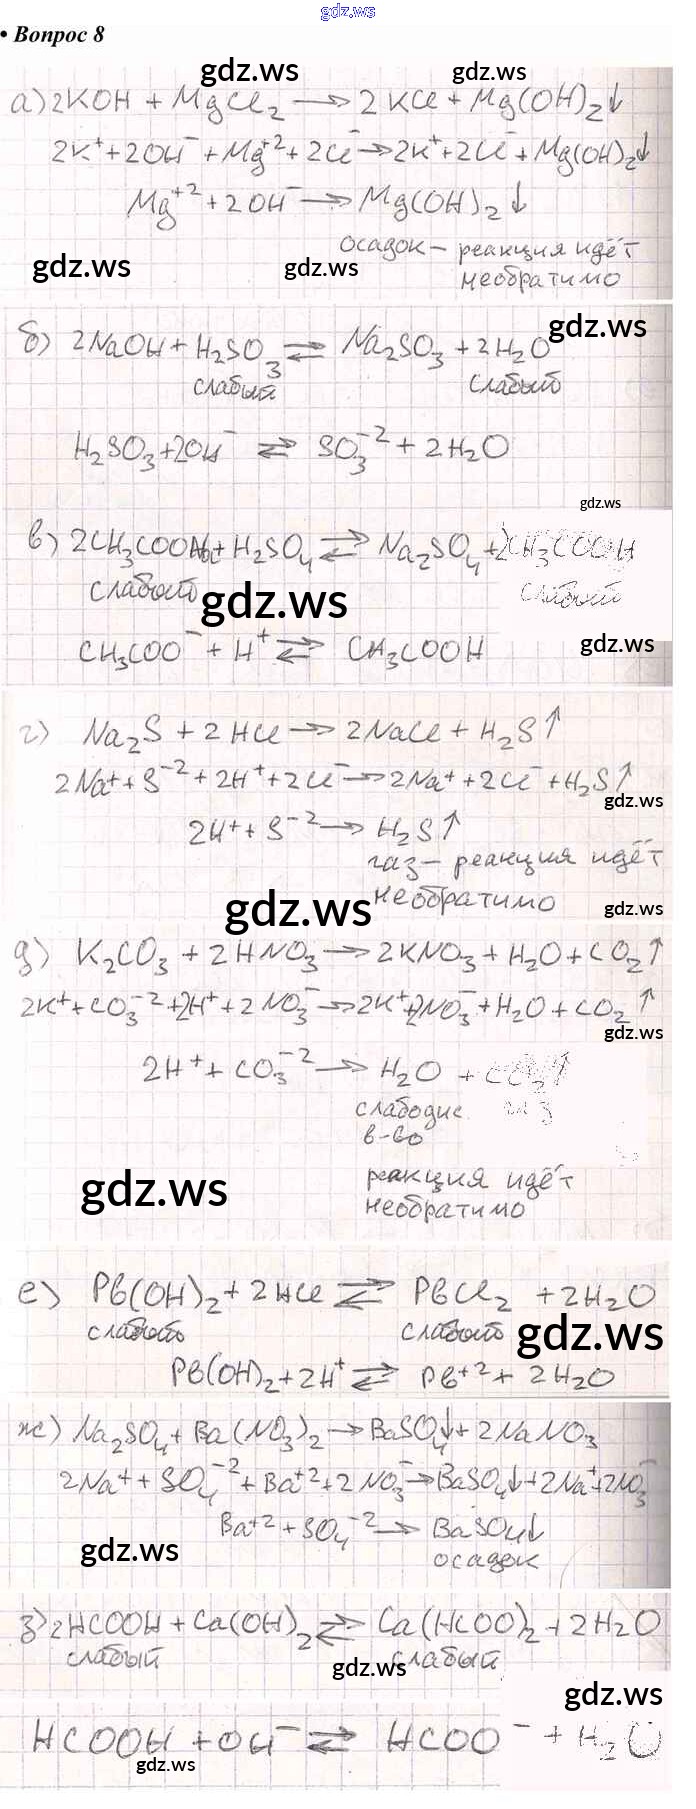 gdz.ws
• Вопрос 8
gdz.ws gdz.ws
а) 2KOH + MgCl₂ → 2KCl + Mg(OH)₂↓
2K⁺ + 2OH⁻ + Mg⁺² + 2Cl⁻ → 2K⁺ + 2Cl⁻ + Mg(OH)₂↓
Mg⁺² + 2OH⁻ → Mg(OH)₂↓
осадок – реакция идёт
gdz.ws gdz.ws необратимо
gdz.ws
б) 2NaOH + H₂SO₃ ⇄ Na₂SO₃ + 2H₂O
слабый слабый
H₂SO₃ + 2OH⁻ ⇄ SO₃⁻² + 2H₂O
gdz.ws
в) 2CH₃COONa + H₂SO₄ ⇄ Na₂SO₄ + 2CH₃COOH
слабый слабый
gdz.ws
gdz.ws
CH₃COO⁻ + H⁺ ⇄ CH₃COOH
г) Na₂S + 2HCl → 2NaCl + H₂S↑
2Na⁺ + S⁻² + 2H⁺ + 2Cl⁻ → 2Na⁺ + 2Cl⁻ + H₂S↑
gdz.ws
2H⁺ + S⁻² → H₂S↑
газ – реакция идёт
необратимо
gdz.ws gdz.ws
д) K₂CO₃ + 2HNO₃ → 2KNO₃ + H₂O + CO₂↑
2K⁺ + CO₃⁻² + 2H⁺ + 2NO₃⁻ → 2K⁺ + 2NO₃⁻ + H₂O + CO₂↑
gdz.ws
2H⁺ + CO₃⁻² → H₂O + CO₂↑
слабодис газ
в-во
gdz.ws реакция идёт
необратимо
е) Pb(OH)₂ + 2HCl ⇄ PbCl₂ + 2H₂O
слабый слабый gdz.ws
Pb(OH)₂ + 2H⁺ ⇄ Pb⁺² + 2H₂O
ж) Na₂SO₄ + Ba(NO₃)₂ → BaSO₄↓ + 2NaNO₃
2Na⁺ + SO₄⁻² + Ba⁺² + 2NO₃⁻ → BaSO₄↓ + 2Na⁺ + 2NO₃⁻
Ba⁺² + SO₄⁻² → BaSO₄↓
gdz.ws осадок
з) 2HCOOH + Ca(OH)₂ ⇄ Ca(HCOO)₂ + 2H₂O
слабый слабый
gdz.ws
gdz.ws
HCOOH + OH⁻ ⇄ HCOO⁻ + H₂O
gdz.ws